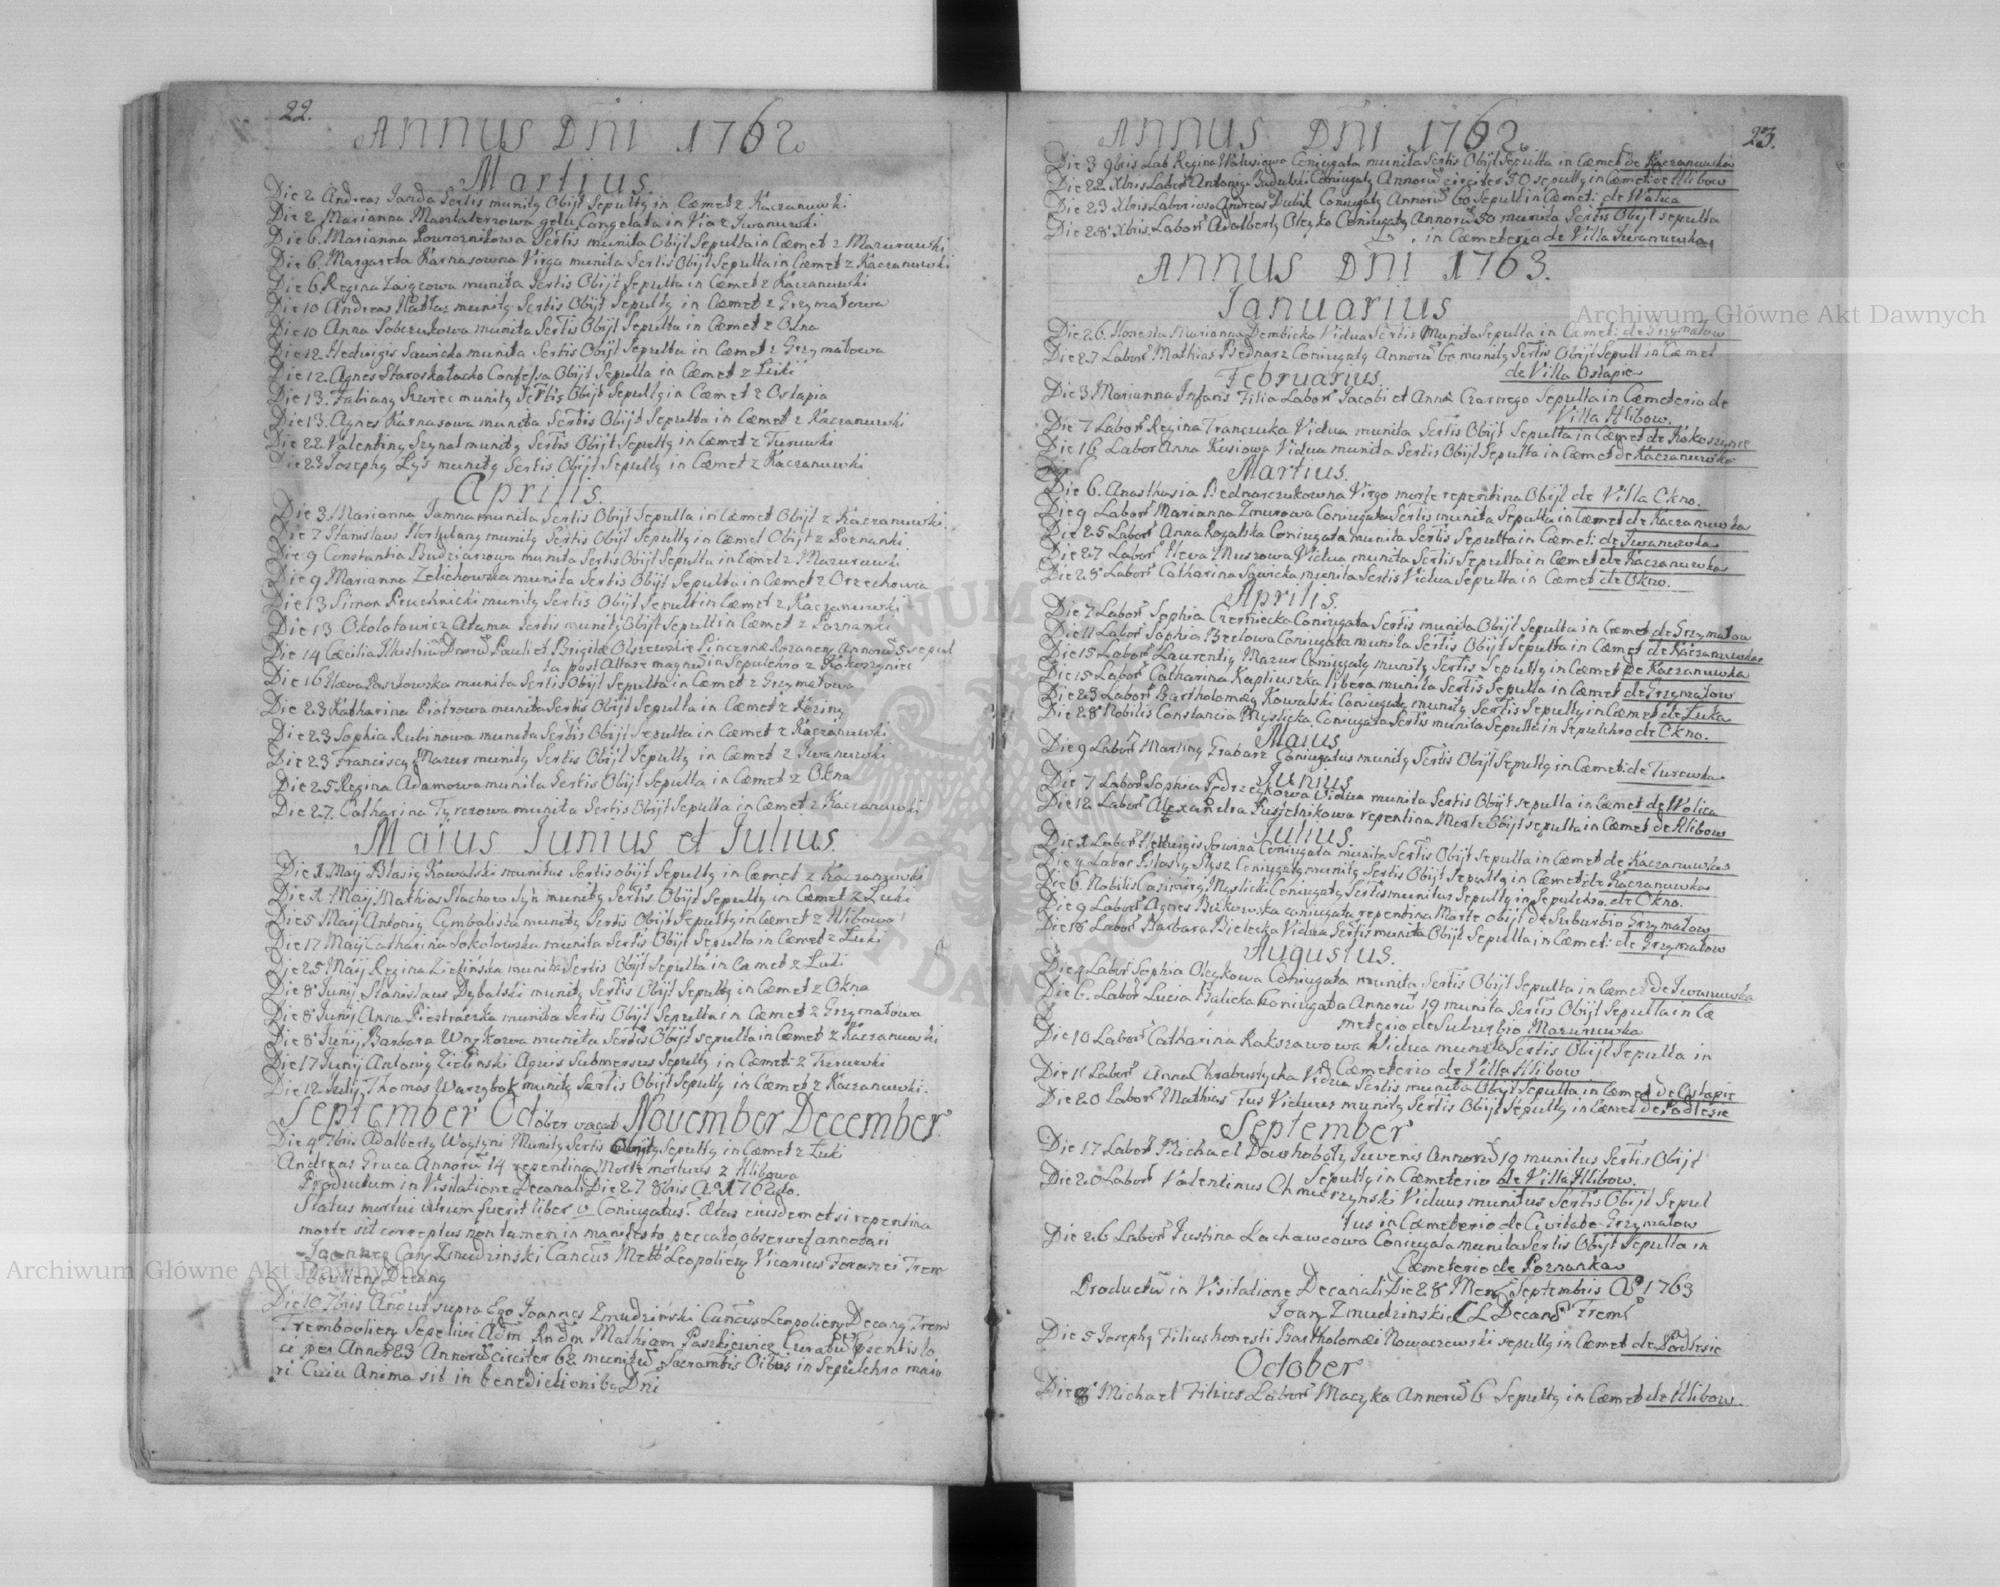 22.
Annus Dni 1762
Martius
Die 2 Andreas Janda Sertis munity Obijt Sepulty in Cæmet z Kaczanuwki
Die 2 Marianna gelu Congelata in Via z Iwanuwki
Die 6. Marianna Powroznikowa Sertis munita Obijt Sepulta in Cæmet z Mazuruwki
Die 6. Margareta Karnasowna Virgo munita Sertis Obijt Sepulta in Cæmet z Kaczanuwki
Die 6. Regina munita Sertis Obijt Sepulta in Cæmet z Kaczanuwki
Die 10 Andreas munity Sertis Obijt Sepulty in Cæmet z Grzymałowa
Die 10 Anna Sobczukowa munita Sertis Obijt Sepulta in Cæmet z Okna
Die 12 Hedwigis Sawicka munita Sertis Obijt Sepulta in Cæmet z Grzymałowa
Die 12. Agnes Confessa Obijt Sepulta in Cæmet z Łuki
Die 13. Fabiany Szwiec munity Sertis Obijt Sepulty in Cæmet z Ostapia
Die 13. Agnes Karnasowa munita Sertis Obijt Sepulta in Cæmet z Kaczanuwki
Die 22 Valentiny Szynal munity Sertis Obijt Sepulty in Cæmet z Turuwki
Die 23 Josephy Lys munity Sertis Obijt Sepulty in Cæmet z Kaczanuwki
Aprilis.
Die 3 Marianna Jamna munita Sertis Obijt Sepulta in Cæmet Obijt z Kaczanuwki
Die 7 Stanislaus Hortulany munity Sertis Obijt Sepulty in Cæmet Obijt z Poznanki
Die 9 Constantia Budziarzowa munita Sertis Obijt Sepulta in Cæmet z Mazuruwki
Die 9 Marianna Zelichowska munita Sertis Obijt Sepulta in Cæmet z Orzechowca
Die 13 Simon Pruchnicki munity Sertis Obijt Sepult in Cæmet z Kaczanuwki
Die 13 Okolotowicz Adama Sertis munity Obijt Sepult in Cæmet z Poznanki
Die 14 Cæcilia Pauli et Brigitæ Olszewskie Pincernæ Annorũ 5 sepul
ta post Altare magnũ in Sepulchro z Kokoszyniec
Die 16 Hæva munita Sertis Obijt Sepulta in Cæmet z Grzymałowa
Die 23 Katharina Piotrowa munita Sertis Obijt Sepulta in Cæmet z
Die 23 Sophia Rubinowa munita Sertis Obijt Sepulta in Cæmet z Kaczanuwki
Die 23 Franciscy Mazur munity Sertis Obijt Sepulty in Cæmet z Iwanuwki
Die 25 Regina Adamowa munita Sertis Obijt Sepulta in Cæmet z Okna
Die 27. Catharina munita Sertis Obijt Sepulta in Cæmet z Kaczanuwki
Maius Iunius et Iulius.
Die 1 Maij Blasiy Kowalski munitus Sertis obijt Sepulty in Cæmet z Kaczanuwki
Die 1 Maij Mathias Stachow Syn munity Sertis Obijt Sepulty in Cæmet z Łuki
Die 5 Maij Antoniy Cymbalista munity Sertis Obijt Sepulty in Cæmet z Hlibowa
Die 17 Maij Catharina Sokołowska munita Sertis Obijt Sepulta in Cæmet z Łuki
Die 25 Maij Regina Zielińska munita Sertis Obijt Sepulta in Cæmet z Łuki
Die 8 Junij Stanislaus Dębalski munity Sertis Obijt Sepulty in Cæmet z Okna
Die 8 Junij Anna Pieträczka munita Sertis Obijt Sepulta in Cæmet z Grzymałowa
Die 8 Junij Barbara munita Sertis Obijt sepulta in Cæmet z Kaczanuwki
Die 17 Junij Antoniy Zieliński Aquis Submersus Sepulty in Cæmet z Turuwki
Die 12 Julij Thomas munity Sertis Obijt Sepulty in Cæmet z Kaczanuwki.
September October vacat November December
Die 4 7bris Adalberty Woytyni Munity Sertis Obijt Sepulty in Cæmet z Łuki
Andreas Gruca Annorũ 14 repentina Morte mortuus z Hlibowa
Productum in Visitatione Decanali Die 27 8bris Ao 1762do.
Status mortui utrum fuerit liber v Coniugatus? Ætas eiusdem et si repentina
morte sit correptus non tamen in manifesto peccato observet annotari
Joannes Can Zmudzinski Cancus Mett Leopolien Vicarius Foranei Trem
bovliens Decany
Die 10 7bris Anõ ut supra Ego Joannes Zmudziński Cancus Leopolien Decany Trem
Trembovlien Sepelivi Adm Rndm Mathiam Paszkiewicz Curatũ præntis lo
ci per Annos 23 Annorũ circiter 62 munitũ Sacramtis Oibus in Sepulchro maio
ri Cuiu Anima sit in benedictioniby Dni
23.
Annus Dni 1762
Die 3 9bris Lab Regina Coniugata munita Sertis Obijt Sepulta in Cæmet de Kaczanuwka
Die 22 Xbris Labor Antoniy Budulski Coniugaty Annorũ circiter 50 sepulty in Cæmet de Hlibow
Die 23 Xbris Laboriosus Andreas Dubik Coniugaty Annorũ 60 Sepult in Cæmet: de Wolica
Die 28 Xbris. Labor Adalberty Oleyko Coniugaty Annorũ 50 munita Sertis Obijt sepulta
in Cæmeterio de Villa Iwanuwka
Annus Dni 1763.
Ianuarius
Die 26. Honesta Marianna Dembicka Vidua Sertis Munita Sepulta in Cæmet: de Grzymałow
Die 27 Labor Mathias Bednarz Coniugaty Annorũ 60 munity Sertis Obijt Sepult in Cæmet
de Villa Ostapie
Februarius.
Die 3 Marianna Infans Filia Labor Jacobi et Annæ Czarnego Sepulta in Cæmeterio de
Villa Hlibow.
Die 7 Labor Regina Franczuka Vidua munita Sertis Obijt Sepulta in Cæmet de Kokoszyniec
Die 16 Labor Anna Kusiowa Vidua munita Sertis Obijt Sepulta in Cæmet de Kaczanuwka
Martius.
Die 6. Anasthasia Bednarczukowna Virgo morte repentina Obijt de Villa Okno.
Die 9 Labor Marianna Zmurowa Coniugata Sertis munita Sepulta in Cæmet de Kaczanuwka
Die 25 Labor Anna Rogalska Coniugata munita Sertis Sepulta in Cæmet: de Iwanuwka
Die 27 Labor Heva Muszowa Vidua munita Sertis Sepulta in Cæmet de Kaczanuwka
Die 28 Labor Catharina Sawicka munita Sertis Vidua Sepulta in Cæmet de Okno.
Aprilis.
Die 7 Labor Sophia Czerniecka Coniugata Sertis munita Obijt Sepulta in Cæmet de Grzymałow
Die 11 Labor Sophia Bzelowa Coniugata munita Sertis Obijt Sepulta in Cæmet de Kaczanuwka
Die 15 Labor Laurentiy Mazur Coniugaty munity Sertis Sepulty in Cæmet de Kaczanuwka
Die 15 Labor Catharina Kaptiuszka libera munita Sertis Sepulta in Cæmet de Grzymałow
Die 23 Labor Bartholomæy Kowalski Coniugaty munity Sertis Sepulty in Cæmet de Łuka
Die 28 Nobilis Constancia Myslicka, Coniugata Sertis munita Sepulta in Sepulchro de Okno.
Maius
Die 9 Labor Martiny Grabarz Coniugatus munity Sertis Obijt Sepulty in Cæmet: de Turuwka
Iunius
Die 7 Labor Sophia Vidua munita Sertis Obijt sepulta in Cæmet de Wolica
Die 12 Labor Alexandra Pusjelnikowa repentina Morte Obijt sepulta in Cæmet de Hlibow
Iulius
Die 1 Labor Hedwigis Sowina Coniugata munita Sertis Obijt Sepulta in Cæmet de Kaczanuwka
Die 4 Labor Blasiy Slysz Coniugaty munity Sertis Obijt Sepulty in Cæmet de Kaczanuwka
Die 6. Nobilis Casimiry Myslicki Coniugaty Sertis munitus Sepulty in Sepulchro. de Okno.
Die 9 Labor Agnes Bukowska coniugata repentina Morte obijt de Suburbio Grzymałow
Die 18 Labor Barbara Bielecka Vidua Sertis munita Obijt Sepulta in Cæmet: de Grzymałow
Augustus.
Die 4 Labor Sophia Oleykowa Coniugata munita Sertis Obijt Sepulta in Cæmet de Iwanuwka
Die 6. Labor Lucia Balicka Coniugata Annorũ 19 munita Sertis Obijt Sepulta in Cæ
meterio de Suburbio Mazuruwka
Die 10 Labor Catharina Rakszawowa Vidua munita Sertis Obijt Sepulta in
Cæmeterio de Villa Hlibow
Die 11 Labor Anna Chrabustycka Vidua Sertis munita Obijt Sepulta in Cæmet de Ostapie
Die 20 Labor Mathias Tus Viduus munity Sertis Obijt Sepulty in Cæmet de Podlesie
September
Die 17 Labor Michael Dowhoboty Iuvenis Annorũ 19 munitus Sertis Obijt
Sepulty in Cæmeterio de Villa Hlibow.
Die 20 Labor Valentinus Chmurzynski Viduus munitus Sertis Obijt Sepul
tus in Cæmeterio de Civitate Grzymałow
Die 26 Labor Justina Lachawcowa Coniugata munita Sertis Obijt Sepulta in
Cæmeterio de Poznanka
Productũ in Visitatione Decanali Die 28 Mens Septembris Ao 1763
Joan Zmudzinski CL Decans Tremb
Die 5 Josephy Filius honesti Bartholomæi Nowaczewski sepulty in Cæmet de Podlesie
October
Die 8 Michael Filius Labor Maczyka Annorũ 6 Sepulty in Cæmet de Hlibow.
Archiwum Główne Akt Dawnych
Archiwum Główne Akt Dawnych